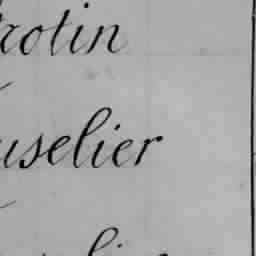 rotin
uselier